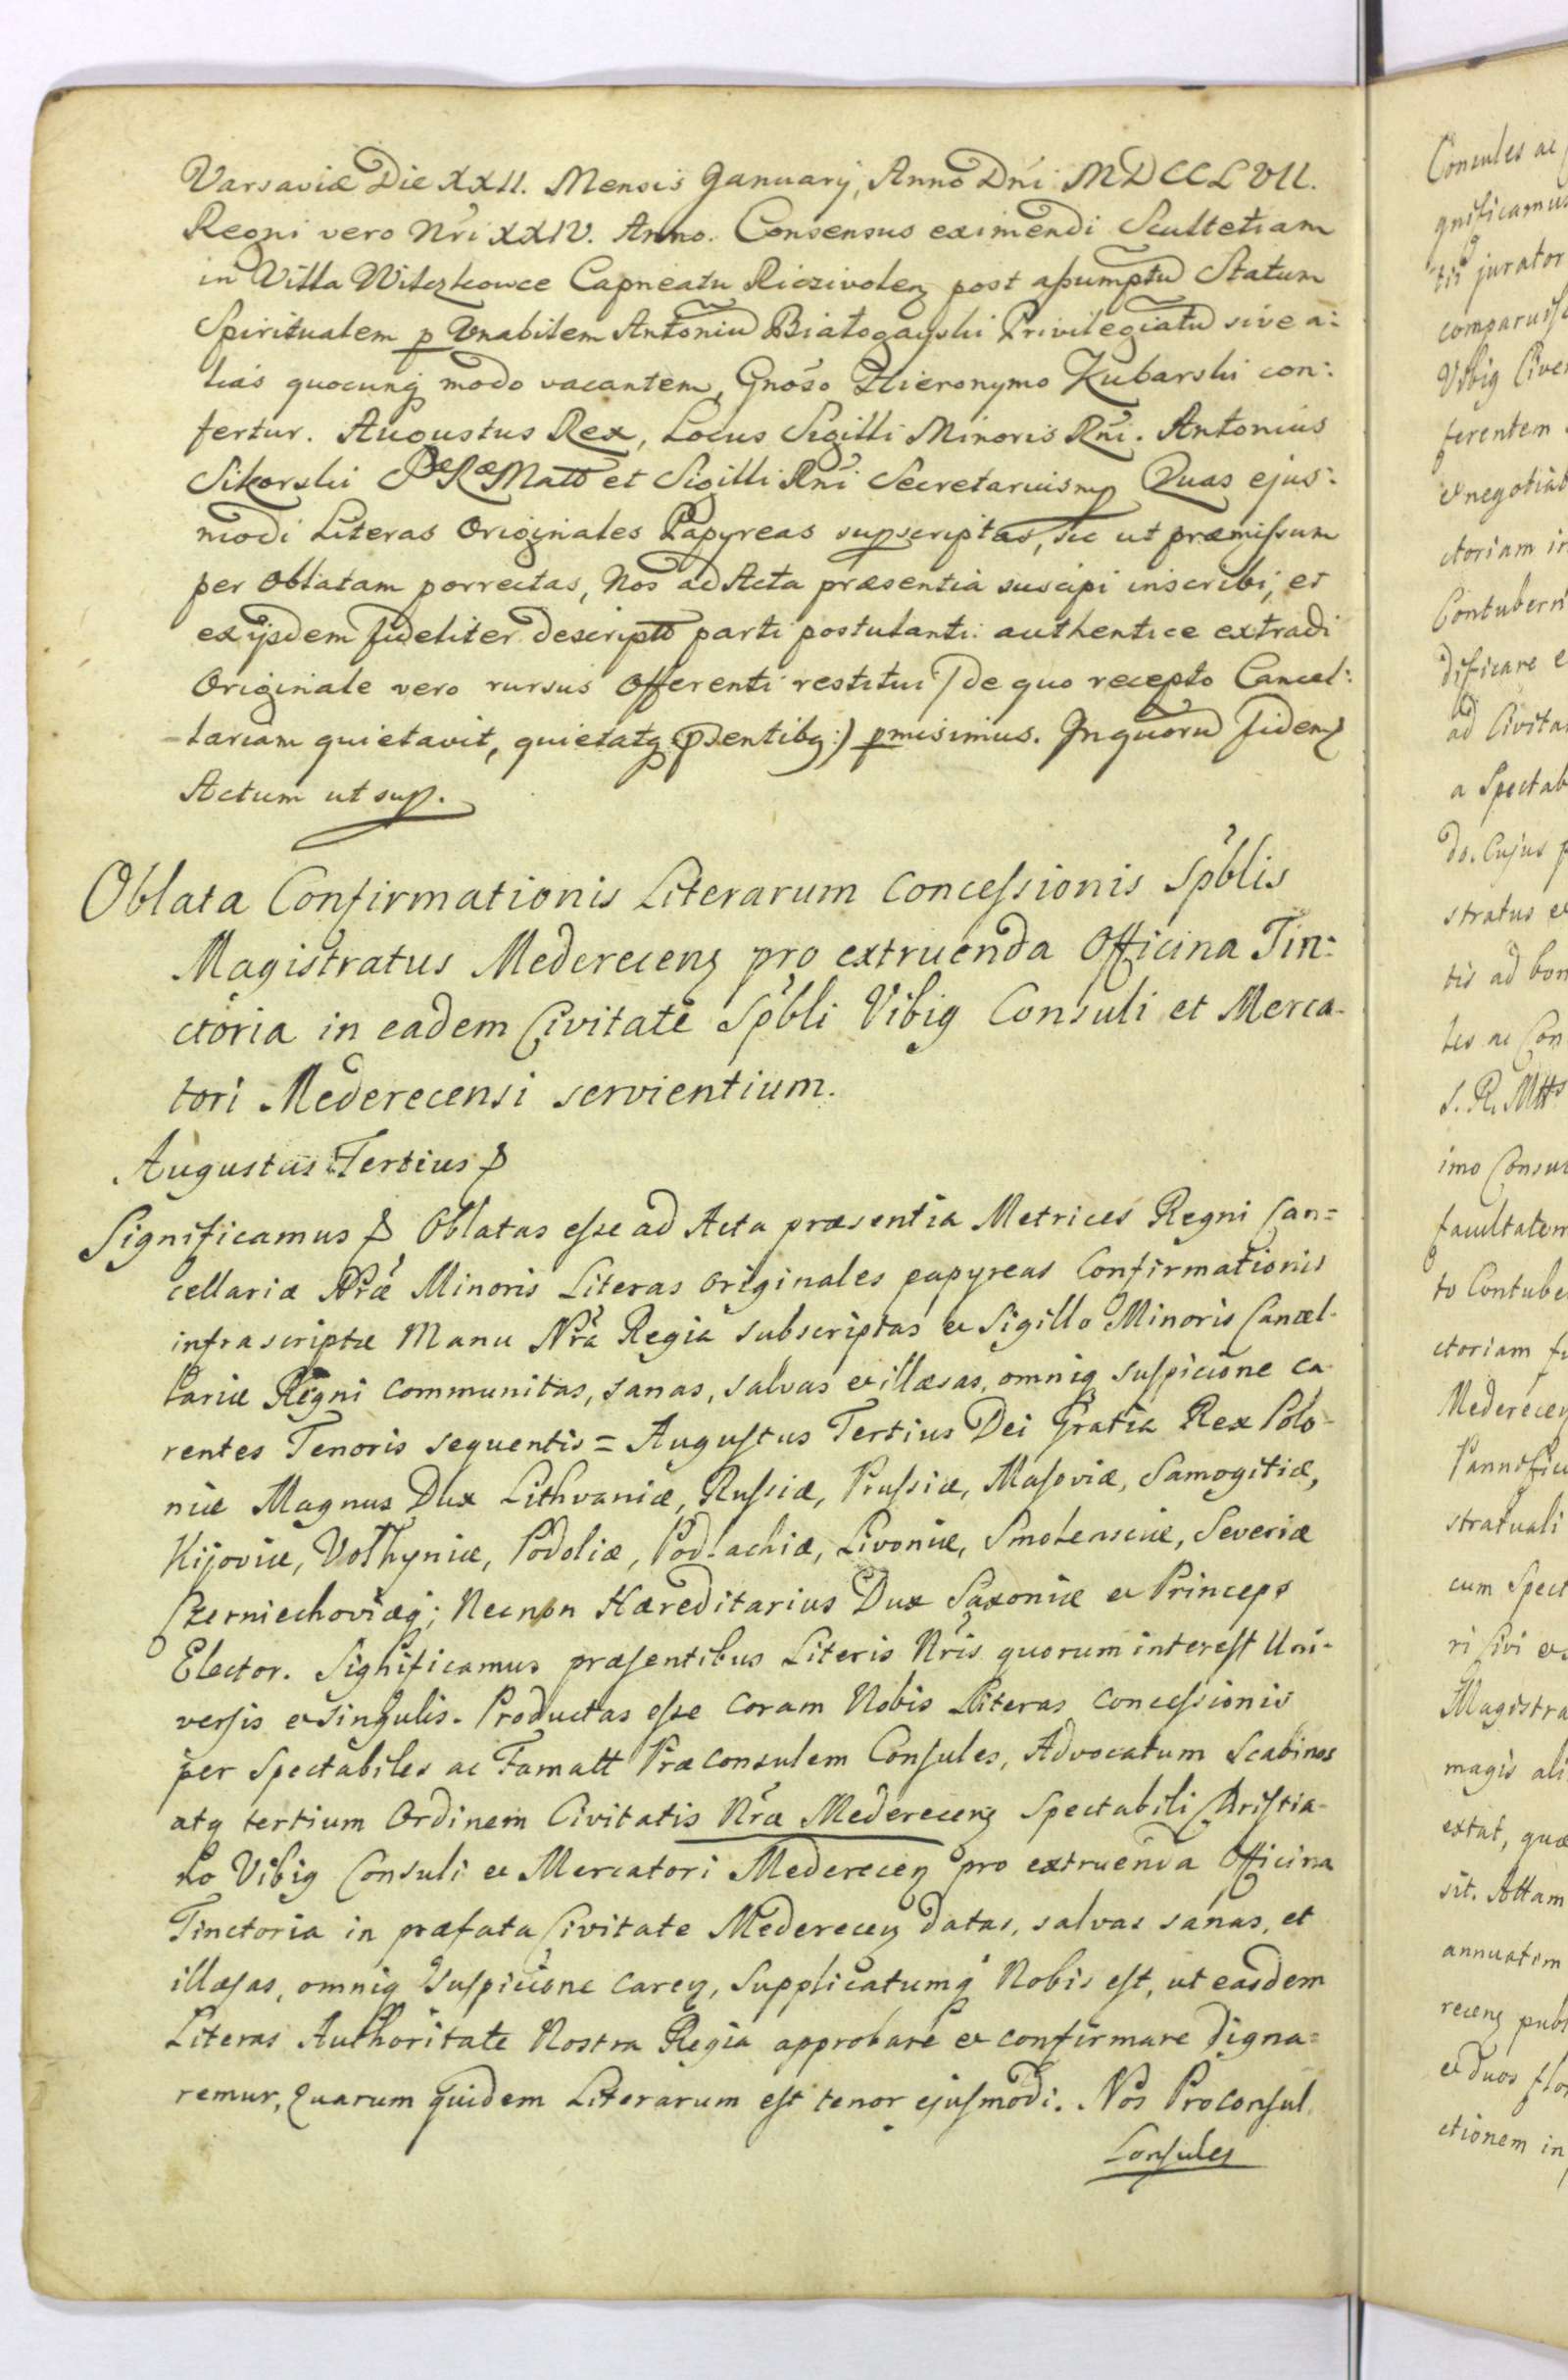 Varsaviæ Die XXII. Mensis Januarÿ, Anno Dni MDCCLVII.
Regni vero Nri XXIV. Anno. Consensus eximendi Scultetiam
in Villa Wilczkowce Capneatu Riczivolen post aßumptũ Statum
Spiritualem p Vnabilem Antoniũ Białogayski Privilegiatũ sive a:
lias quocunq modo vacantem, Gnoso Hieronymo Kubarski con:
fertur. Augustus Rex, Locus Sigilli Minoris Rni. Antonius
Sikorski SRMatt et Sigilli Rni Secretarius mp Quas ejus:
modi Literas Originales Papyreas supscriptas, sic ut præmissum
per Oblatam porrectas, Nos ad Acta præsentia suscipi inscribi, et
ex ijsdem fideliter descriptt parti postulanti authentice extradi
Originale vero rursus Offerenti restitui /: de quo recepto Cancel:
lariam quietavit, quietatq psentibq :) pmisimus. In quorũ fidem
Actum ut sup.
Oblata Confirmationis Literarum Concessionis Spblis
Magistratus Mederecenz pro extruenda Officina Tin:
ctoria in eadem Civitate Spbli Vibig Consuli et Merca-
tori Mederecensi servientium.
Augustus Tertius &
Significamus & Oblatas esse ad Acta præsentia Metrices Regni Can=
cellariæ Nræ Minoris Literas originales papyreas Confirmationis
infrascriptæ Manu Nra Regia subscriptas et Sigillo Minoris Cancel-
lariæ Regni communitas, sanas, salvas et illæsas, omniq suspicione ca
rentes Tenoris sequentis = Augustus Tertius Dei Gratia Rex Polo-
niæ Magnus Dux Lithvaniæ, Russiæ, Prussiæ, Masoviæ, Samogitiæ,
Kijoviæ, Volhyniæ, Podoliæ, Podlachiæ, Livoniæ, Smolensciæ, Severiæ
Czerniechoviæq; Necnon Hæreditarius Dux Saxoniæ et Princeps
Elector. Significamus præsentibus Literis Nris quorum interest Uni-
versis et singulis. Productas esse coram Nobis Literas concessionis
per Spectabiles ac Famatt Præconsulem Consules, Advocatum Scabinos
atq tertium Ordinem Civitatis Nræ Mederecenz Spectabili Christia-
no Vibig Consuli et Mercatori Mederecen pro extruenda Officina
Tinctoria in præfata Civitate Mederecen datas, salvas sanas, et
illæsas, omniq suspicione caren, supplicatumq Nobis est, ut easdem
Literas Authoritate Nostra Regia approbare et confirmare digna=
remur, Quarum quidem Literarum est tenor ejusmodi. Nos Proconsul
Consules
Consules ac
gnificamus
tis jurator
comparuiss
Vibig Cive
ferentem
et negotiat
ctoriam in
Contubern
dificare e
ad Civita
a Spectab
do. Cujus p
stratus et
tis ad bon
les ac Con
S. R. Mtts
imo Consu
facultatem
to Contube
ctoriam fu
Mederecen
Pannific
stratuali
cum Spect
ri sivi et
Magistra
magis ali
extat, quæ
sit. Attam
annuatim
recenz publ
et duos flo
ctionem in